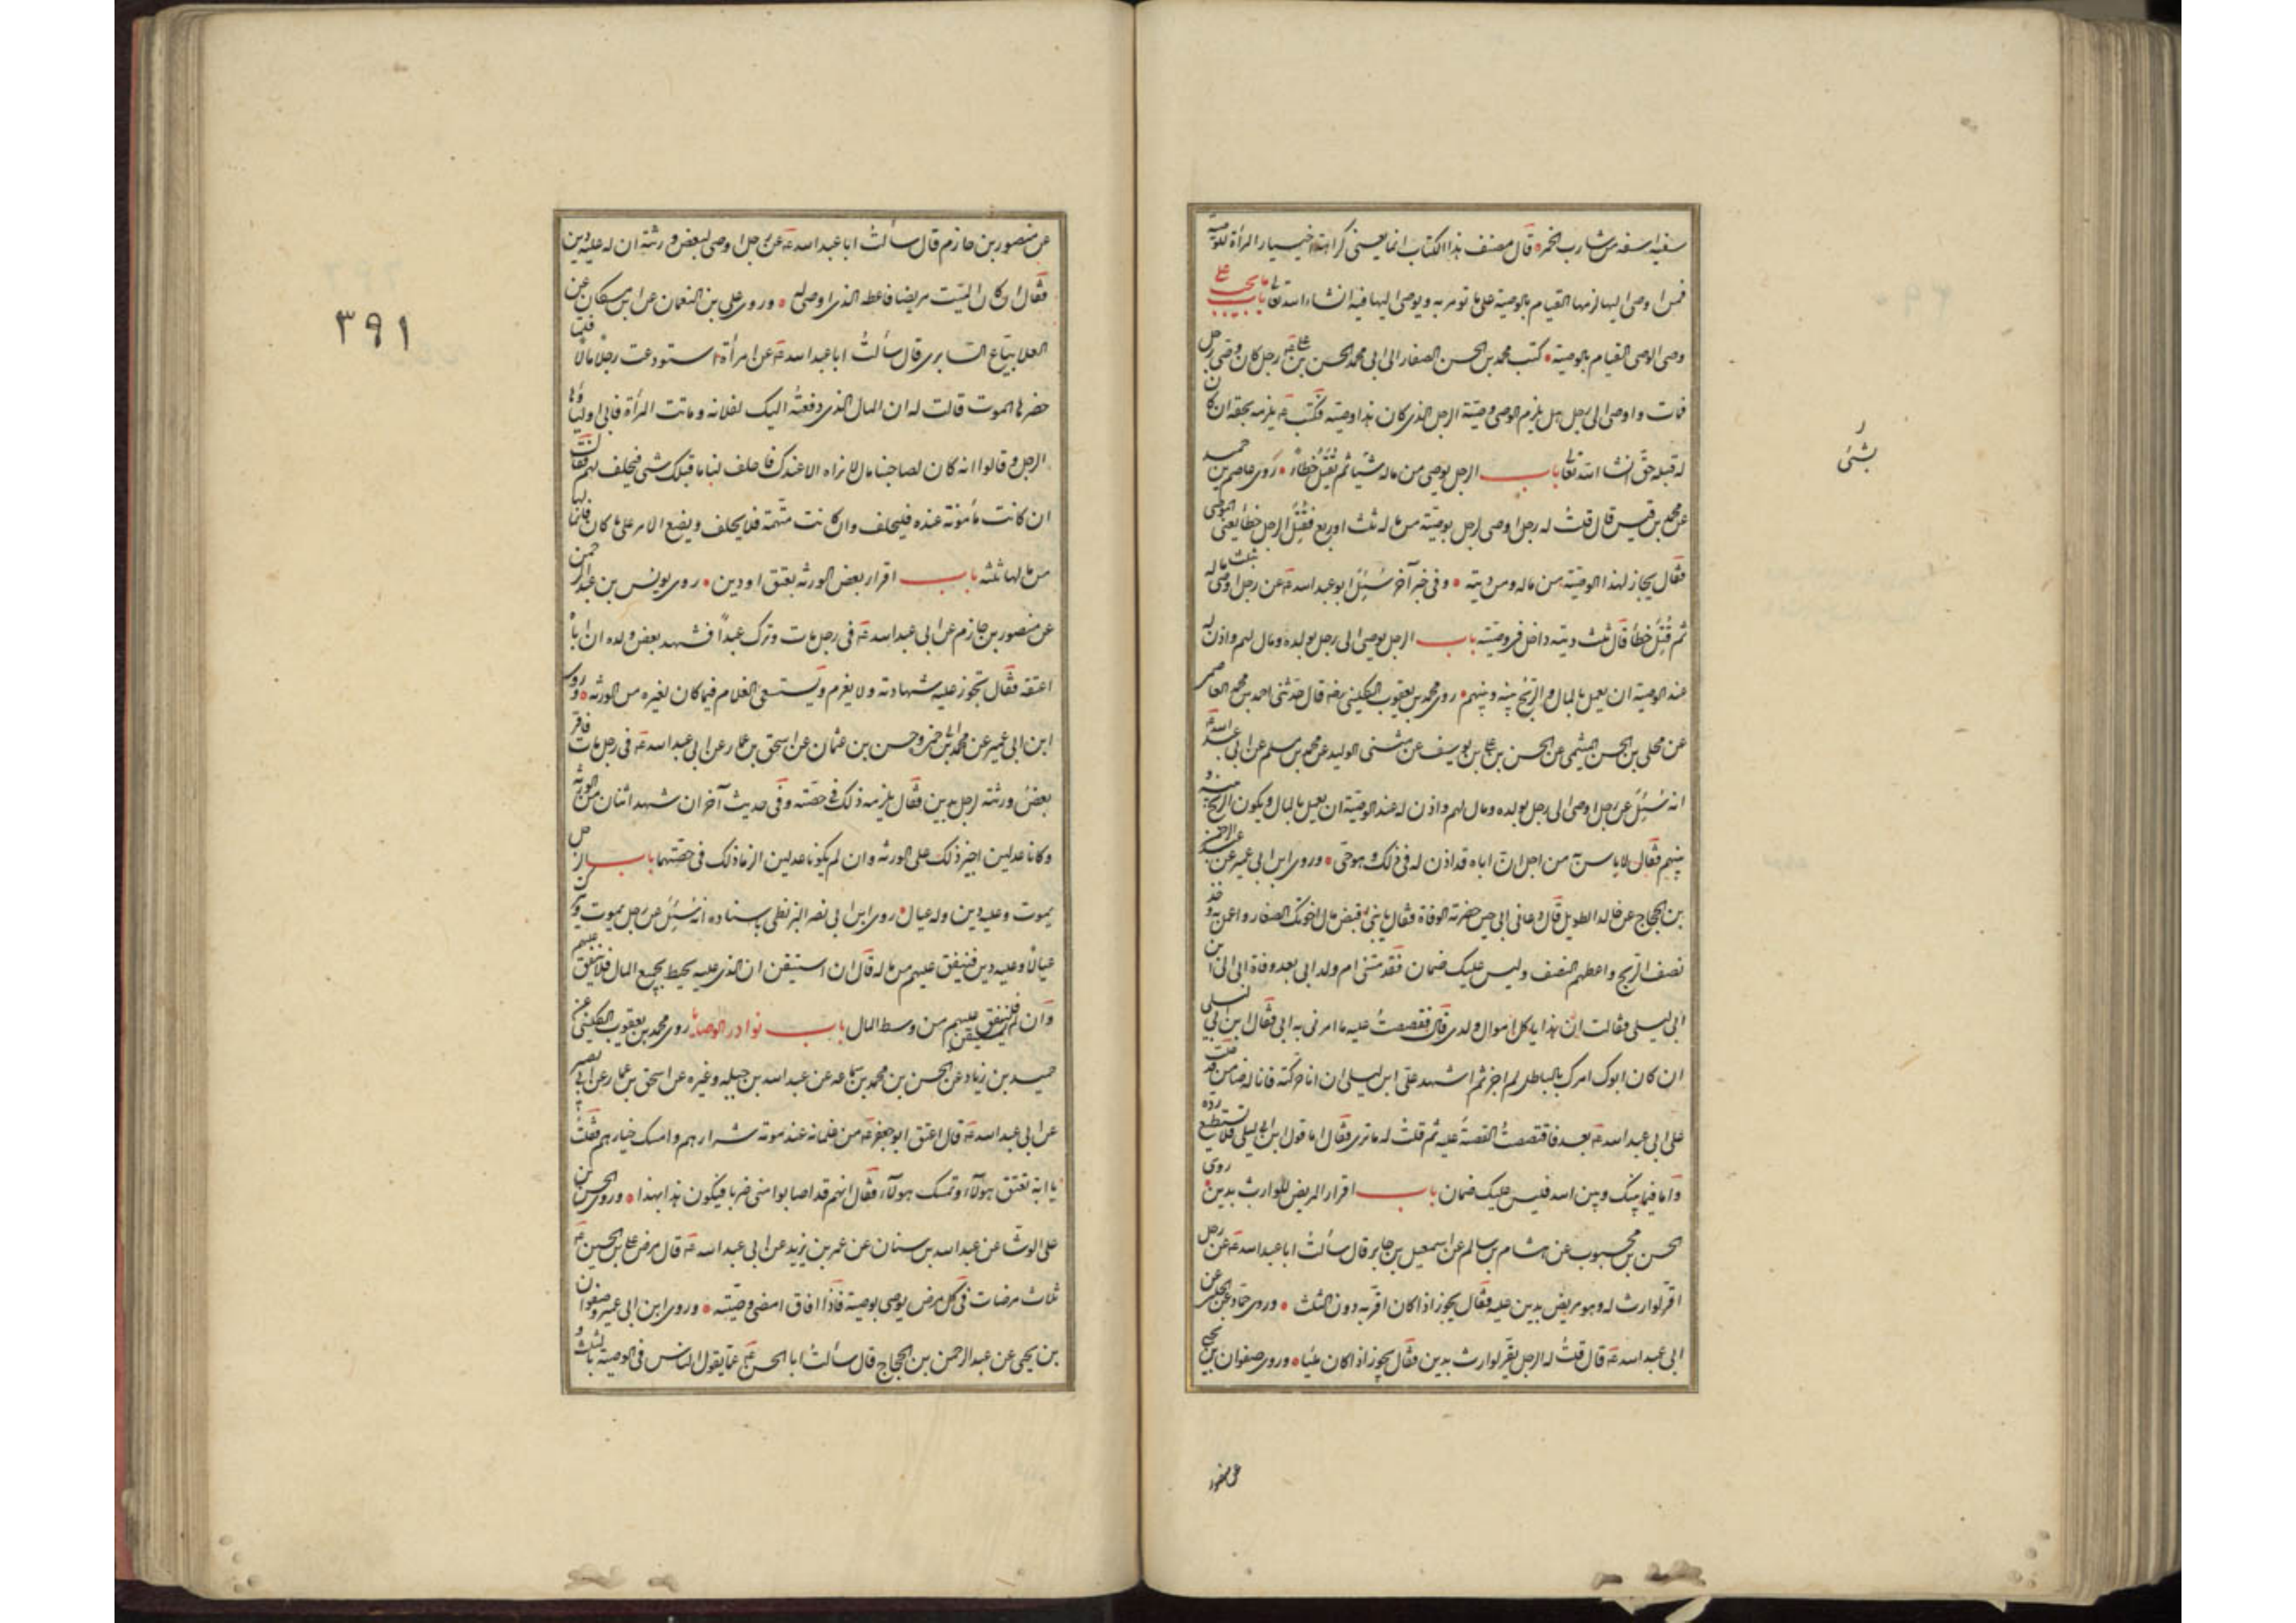 سفيه اسفه من شارب الخمر قال مصنف هذا الكتاب انما يعنى كراهة اختيار المرأة للوصية
فمن اوصى اليها لزمها القيام بالوصية على ما تومر به ويوصى اليها فيه انشاء الله تعالى باب ما يجب على
وصى الوصى القيام بالوصية كتب محمد بن الحسن الصفار الى ابى محمد الحسن بن على ع رجل كان وصى رجل
فمات واوصى الى رجل هل يلزم الوصى وصية الرجل الذى كان هذا وصيه فكتب ع يلزمه بحقه ان كان
له قبله حق انشاء الله تعالى باب الرجل يوصى من ماله شيئا ثم يقتل خطاء روى عاصم بن حميد
عن محمد بن قيس قال قلت له رجل اوصى لرجل بوصية من ماله ثلث او ربع فقتل الرجل خطأ يعنى الموصى
فقال يجاز لهذا الوصية من ماله ومن ديته وفى خبر آخر سئل ابو عبد الله ع عن رجل اوصى بثلث ماله
ثم قتل خطأ قال ثلث ديته داخل فى وصيته باب الرجل يوصى الى رجل بولده ومال لهم واذن له
عند الوصية ان يعمل بالمال والربح بينه وبينهم روى محمد بن يعقوب الكلينى رضه قال حدثنى احمد بن محمد العاصمى
عن على بن الحسن الميثمى عن الحسن بن على بن يوسف عن مثنى الوليد عن محمد بن مسلم عن ابى عبد الله ع
انه سئل عن رجل اوصى الى رجل بولده ومال لهم واذن له عند الوصية ان يعمل بالمال ويكون الربح بينه و
بينهم فقال لا باس به من اجل ان اباه قد اذن له فى ذلك وهو حى وروى ابن ابى عمير عن عبد الرحمن
بن الحجاج عن خالد الطويل قال دعانى ابى حين حضرته الوفاة فقال يا بنى اقبض مال اخوتك الصغار واعمل به وخذ
نصف الربح واعطهم النصف وليس عليك ضمان فقدمتنى ام ولد ابى بعد وفاة ابى الى ابن
ابى ليلى فقالت ان هذا ياكل اموال ولدى قال فقصصت عليه ما امرنى به ابى فقال ابن ابى ليلى
ان كان ابوك امرك بالباطل لم اجزه ثم اشهد على ابن ليلى ان انا حركته فانا له ضامن فدخلت
على ابى عبد الله ع بعد فاقتصصت القصة عليه ثم قلت له ما ترى فقال اما قول ابن ابى ليلى فلا تستطيع رده
واما فيما بينك وبين الله فليس عليك ضمان باب اقرار المريض للوارث بدين روى
الحسن بن محبوب عن هشام بن سالم عن اسمعيل بن جابر قال سألت ابا عبد الله ع عن رجل
اقر لوارث له وهو مريض بدين عليه فقال يجوز اذا كان اقر به دون الثلث وروى حماد عن الحلبى عن
ابى عبد الله ع قال قلت له الرجل يقر لوارث بدين فقال يجوز اذا كان مليا وروى صفوان بن يحيى
عن منصور
بشئ
عن منصور بن حازم قال سألت ابا عبد الله ع عن رجل اوصى لبعض ورثته ان له عليه دين
فقال ان كان الميت مريضا فاعطه الذى اوصى له وروى على بن النعمان عن ابن مسكان عن
العلا بياع السابرى قال سألت ابا عبد الله ع عن امرأة استودعت رجلا مالا فلما
حضرها الموت قالت له ان المال الذى دفعته اليك لفلانه وماتت المرأة فاتى اولياؤها
الرجل وقالوا انه كان لصاحبنا مال لا نراه الا عندك فاحلف لنا ما قبلك شئ فيحلف لهم فقال
ان كانت مأمونة عنده فليحلف وان كانت متهمة فلا يحلف ويضع الامر على ما كان فانما لها
من مالها ثلثه باب اقرار بعض الورثه بعتق او دين روى يونس بن عبد الرحمن
عن منصور بن حازم عن ابى عبد الله ع فى رجل مات وترك عبدا فشهد بعض ولده ان اباه
اعتقه فقال تجوز عليه شهادته ولا يغرم ويستسعى الغلام فيما كان لغيره من الورثه وروى
ابن ابى عمير عن محمد بن ابى حمزة وحسين بن عثمان عن اسحق بن عمار عن ابى عبد الله ع فى رجل مات فاقر
بعض ورثته لرجل بدين فقال يلزمه ذلك فى حصته وفى حديث آخر ان شهد اثنان من الورثة
وكانا عدلين اجيز ذلك على الورثه وان لم يكونا عدلين الزما ذلك فى حصتهما باب الرجل
يموت وعليه دين وله عيال روى ابن ابى نصر البزنطى باسناده انه سئل عن رجل يموت وترك
عيالا وعليه دين فينفق عليهم من ماله قال ان استيقن ان الذى عليه يحيط بجميع المال فلا ينفق عليهم
وان لم يستيقن فلينفق عليهم من وسط المال باب نوادر الوصايا روى محمد بن يعقوب الكلينى عن
حميد بن زياد عن الحسن بن محمد بن سماعه عن عبد الله بن جبله وغيره عن اسحق بن عمار عن ابى بصير
عن ابى عبد الله ع قال اعتق ابو جعفر ع من غلمانه عند موته شرارهم وامسك خيارهم فقلت
يا ابة تعتق هولاء وتمسك هولاء فقال انهم قد اصابوا منى ضربا فيكون هذا بهذا وروى الحسن بن
على الوشا عن عبد الله بن سنان عن عمر بن يزيد عن ابى عبد الله ع قال مرض على بن الحسين ع
ثلث مرضات فى كل مرض يوصى بوصية فاذا افاق امضى وصيته وروى ابن ابى عمير وصفوان
بن يحيى عن عبد الرحمن بن الحجاج قال سألت ابا الحسن ع عما يقول الناس فى الوصية بالثلث و
٣٩١